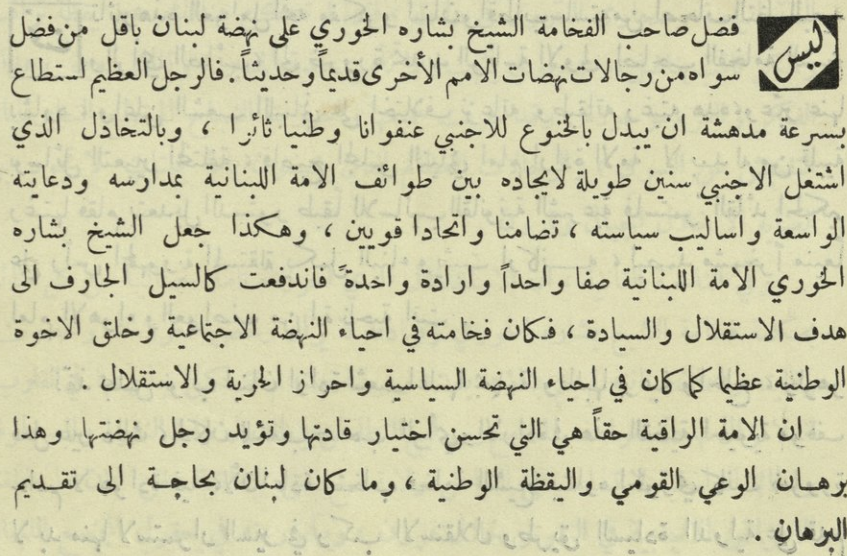 ليس فضل صاحب الفخامة الشيخ بشاره الخوري على نهضة لبنان باقل من فضل
سواه من رجالات نهضات الامم الأخرى قديماً وحديثاً. فالرجل العظيم استطاع
بسرعة مدهشة ان يبدل بالخنوع للاجنبي عنفوانا وطنيا ثائرا ، وبالتخاذل الذي
اشتغل الاجنبي سنين طويلة لايجاده بين طوائف الامة اللبنانية بمدارسه ودعايته
الواسعة واساليب سياسته ، تضامنا واتحادا قويين ، وهكذا جعل الشيخ بشاره
الخوري الامة اللبنانية صفا واحداً وارادة واحدةً فاندفعت كالسيل الجارف الى
هدف الاستقلال والسيادة ، فكان فخامته في احياء النهضة الاجتماعية وخلق الاخوة
الوطنية عظيما كما كان في احياء النهضة السياسية واحراز الحرية والاستقلال .
ان الامة الراقية حقاً هي التي تحسن اختيار قادتها وتؤيد رجل نهضتها وهذا
برهان الوعي القومي واليقظة الوطنية ، وما كان لبنان بحاجة الى تقديم
البرهان .